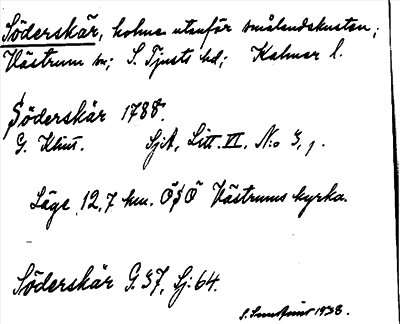 Söderskär, holme utanför smålandskusten;
Västrum sn; S. Tjusts hd; Kalmar l.
Söderskär 1788.
G. Klint. SjA, Litt. VI. No 3, 1.
Läge 12,7 km. ÖSÖ Västrums kyrka.
Söderskär G. 37, Sj: 64.
1938.